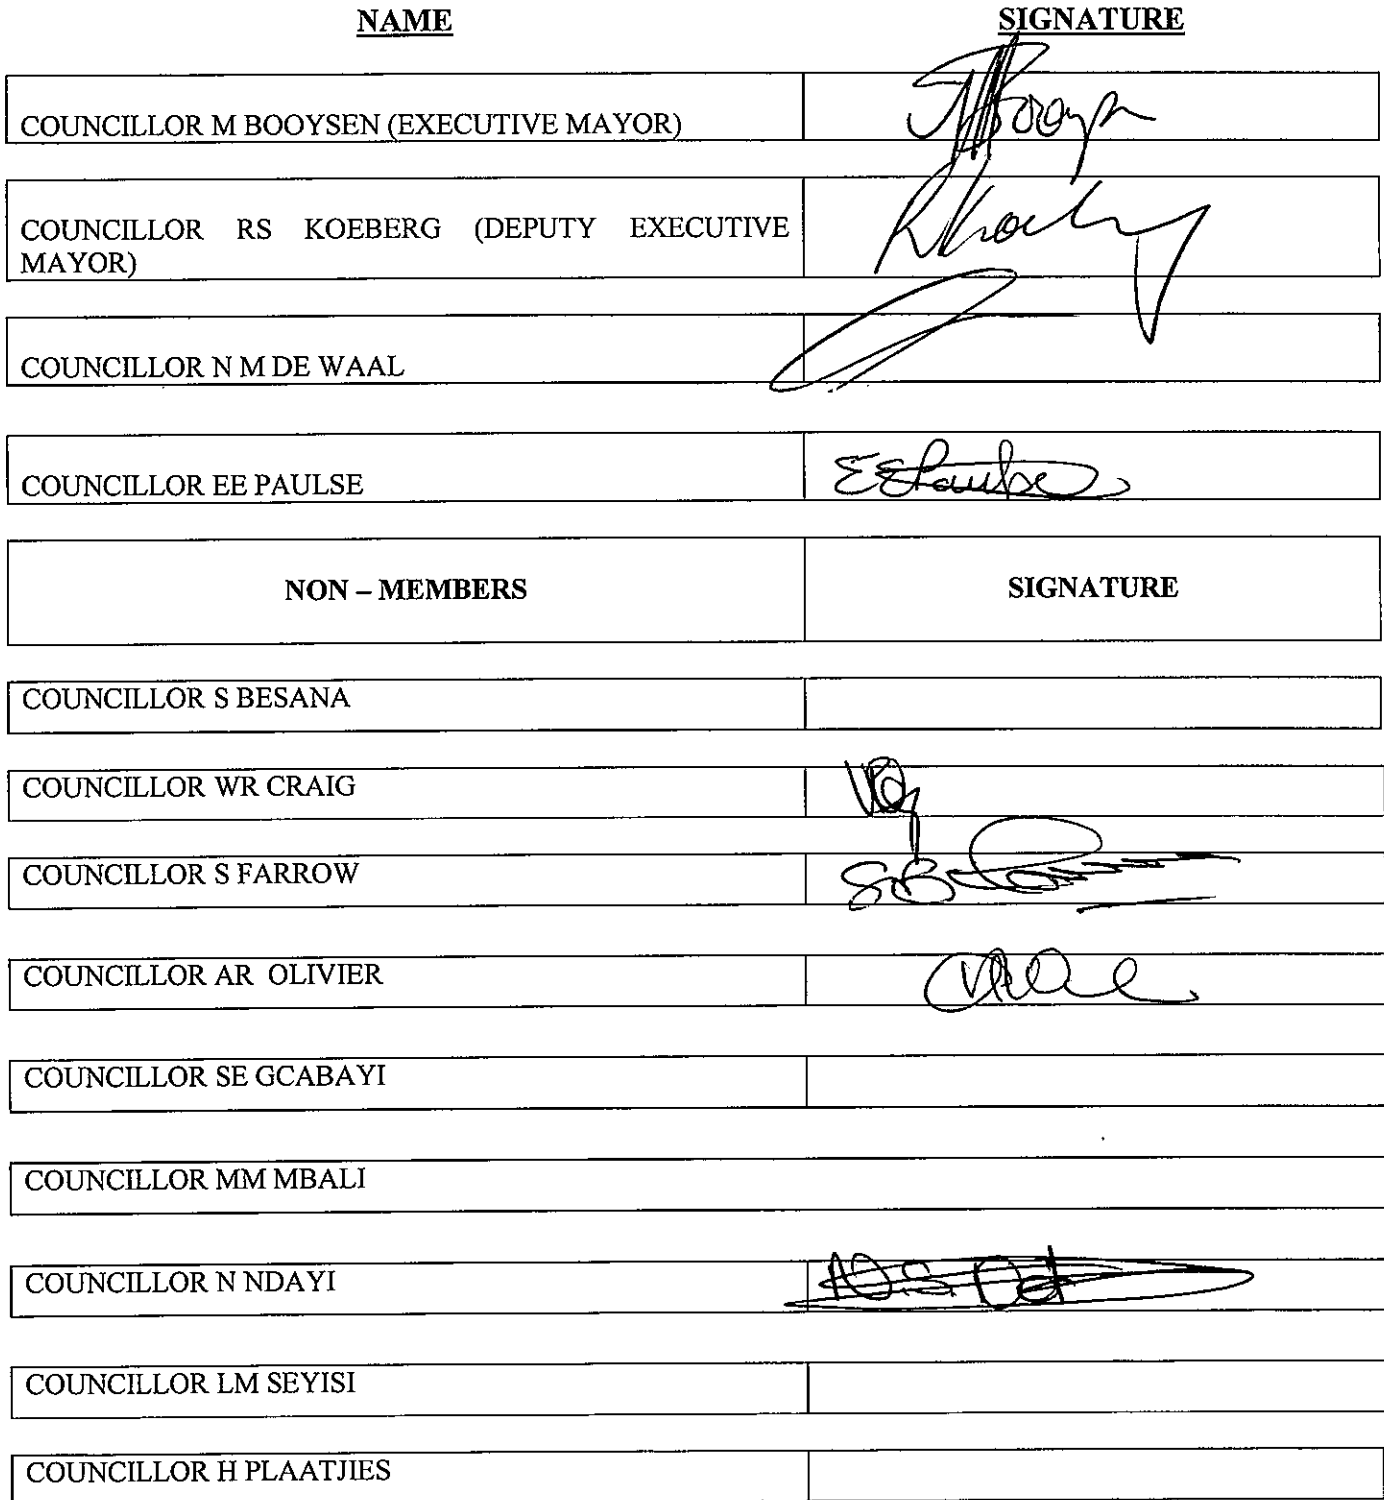 NAME SIGNATURE
COUNCILLOR M BOOYSEN (EXECUTIVE MAYOR)
COUNCILLOR RS KOEBERG (DEPUTY EXECUTIVE
MAYOR)
COUNCILLOR N M DE WAAL
COUNCILLOR EE PAULSE EEPaulse
NON – MEMBERS SIGNATURE
COUNCILLOR S BESANA
COUNCILLOR WR CRAIG
COUNCILLOR S FARROW
COUNCILLOR AR OLIVIER
COUNCILLOR SE GCABAYI
COUNCILLOR MM MBALI
COUNCILLOR N NDAYI
COUNCILLOR LM SEYISI
COUNCILLOR H PLAATJIES